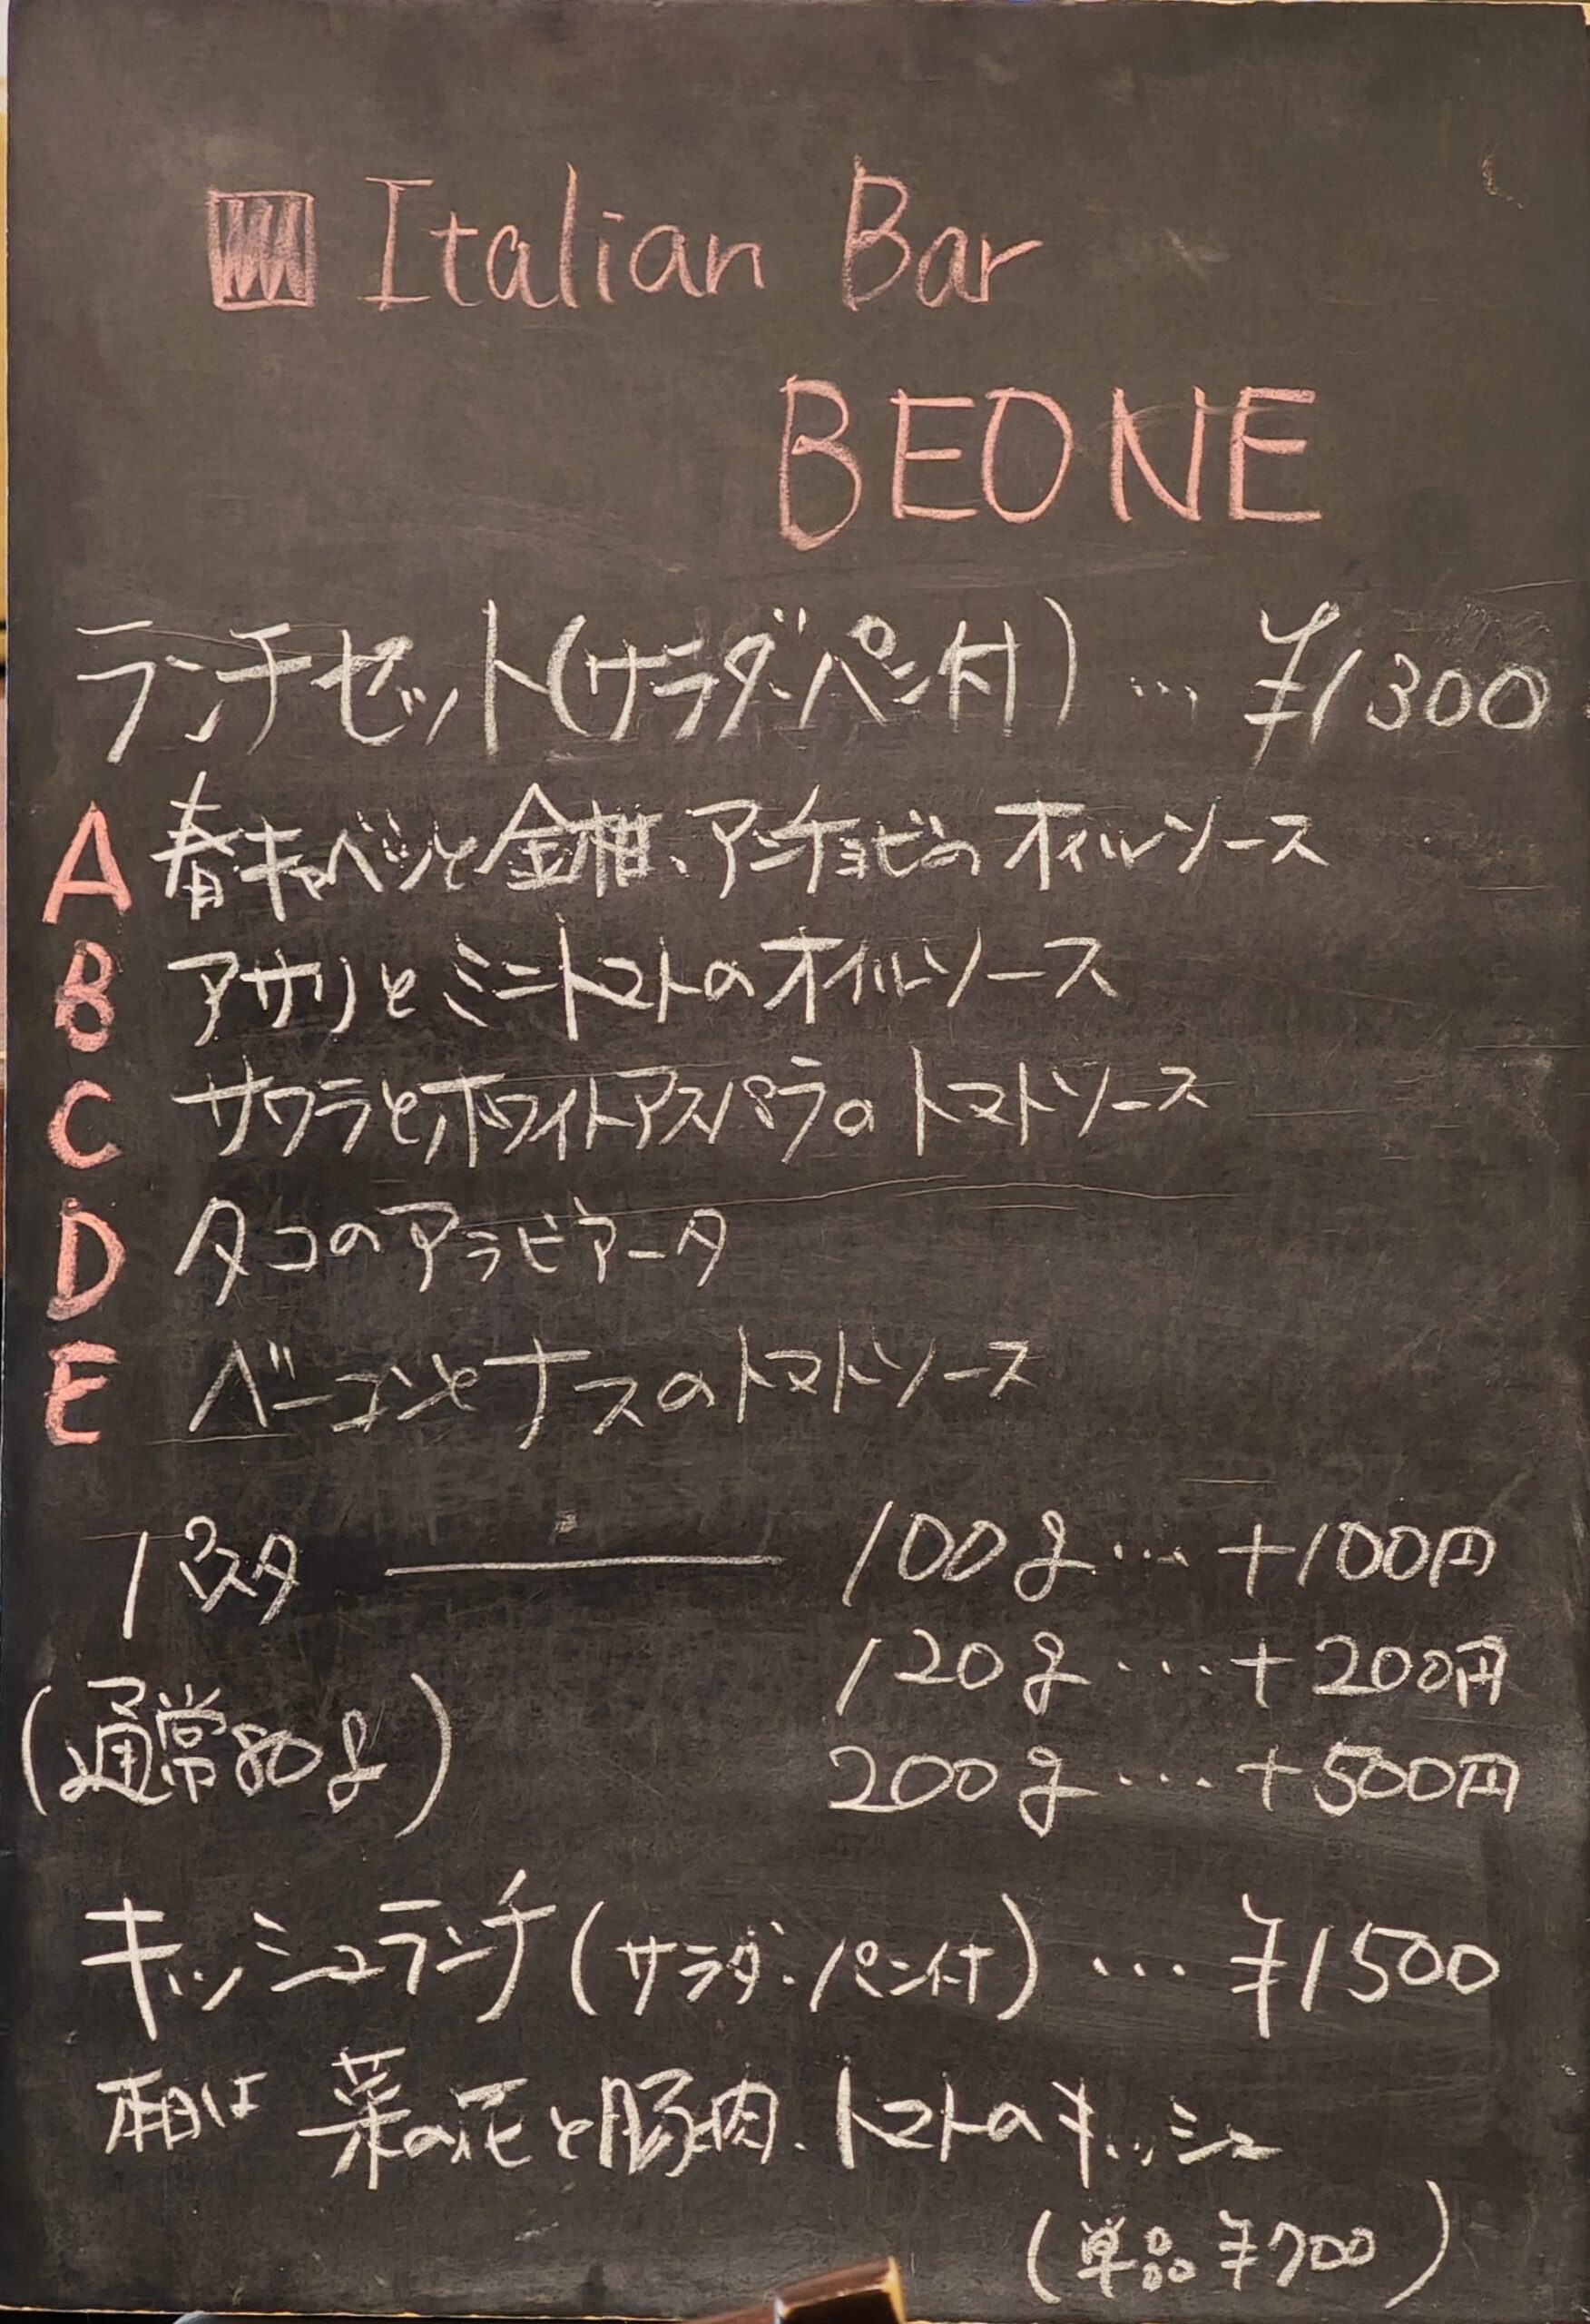 Italian Bar
BEONE
ランチセット(サラダ・パン付) … ¥1300
A 春キャベツと金柑、アンチョビのオイルソース
B アサリとミニトマトのオイルソース
C サワラとホワイトアスパラのトマトソース
D タコのアラビアータ
E ベーコンとナスのトマトソース
パスタ ― 100g … +100円
(通常80g)
120g … +200円
200g … +500円
キッシュランチ(サラダ・パン付) … ¥1500
本日は 菜の花と豚肉、トマトのキッシュ
(単品¥700)